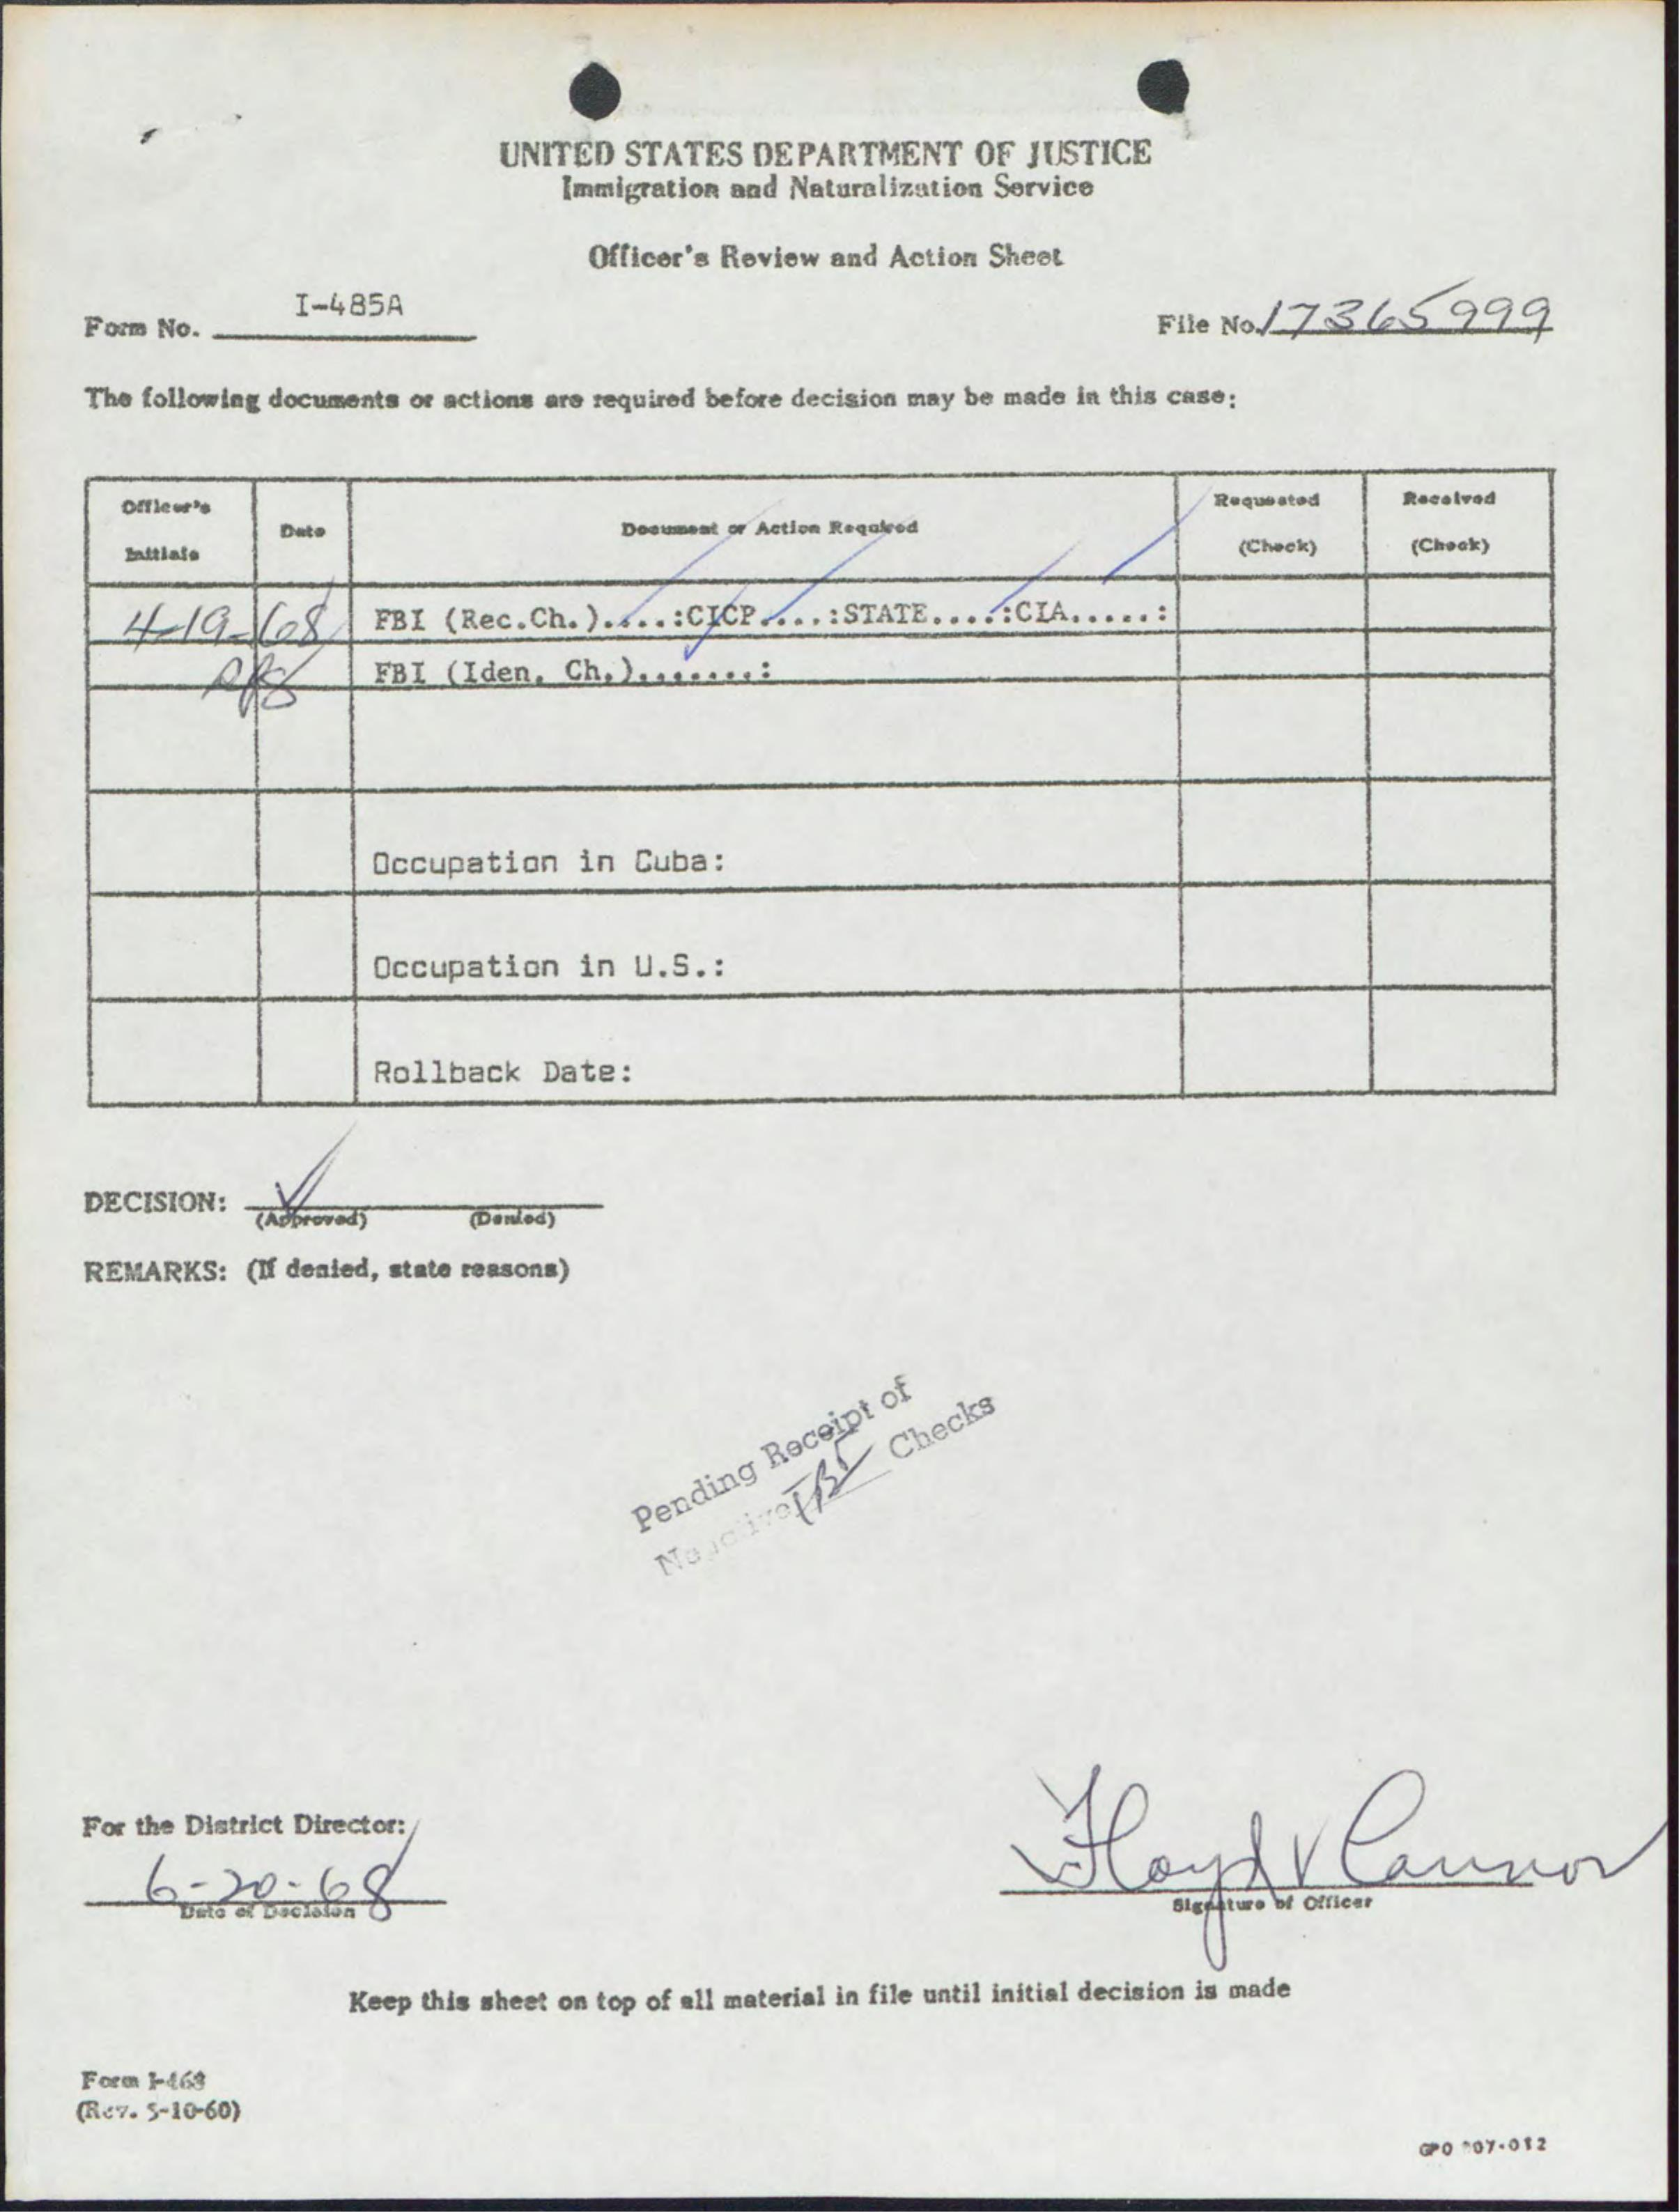 UNITED STATES DEPARTMENT OF JUSTICE
Immigration and Naturalization Service
Officer's Review and Action Sheet
Form No. I-485A
File No. 17365999
The following documents or actions are required before decision may be made in this case:
Officer's Initials
Date
Document or Action Required
Requested (Check)
Received (Check)
4-19-68 FBI (Rec.Ch.).....:CICP.....:STATE.....:CIA.....:
FBI (Iden. Ch.).......:
Occupation in Cuba:
Occupation in U.S.:
Rollback Date:
DECISION:
(Approved) (Denied)
REMARKS: (If denied, state reasons)
Pending Receipt of
Negative Checks
For the District Director:
6-20-68
Date of Decision
Floyd V Cannon
Signature of Officer
Keep this sheet on top of all material in file until initial decision is made
Form I-468
(Rev. 5-10-60)
GPO 907-012